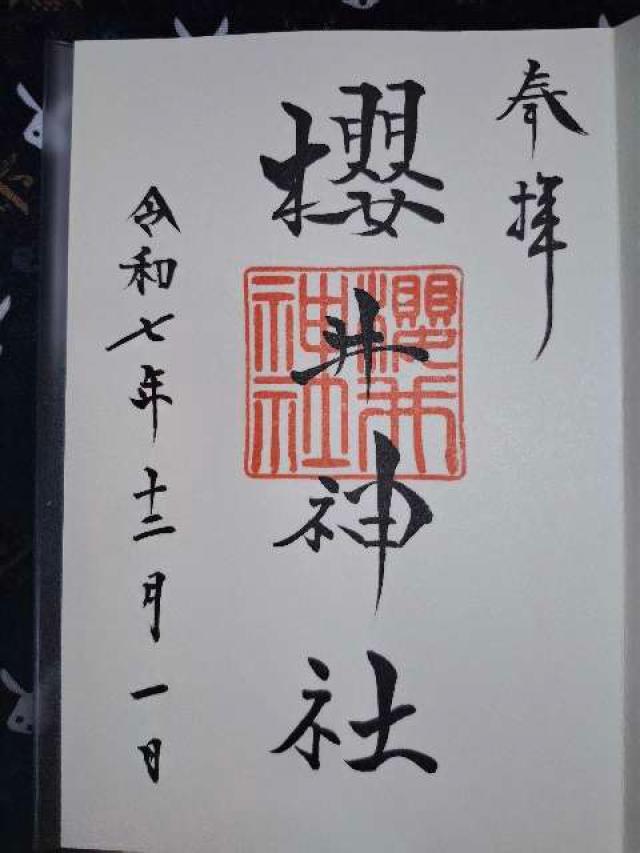 奉拝
櫻井神社
櫻井神社
令和七年十二月一日